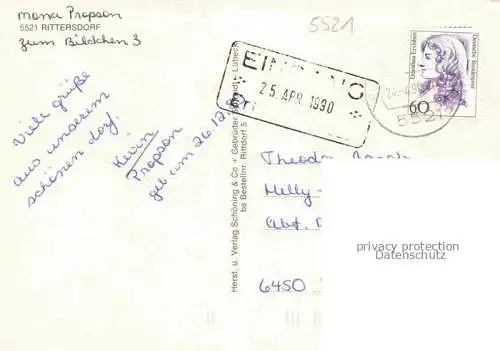 mona Propson
5521 RITTERSDORF
zum Bildchen 3
5521
EINGANG
25. APR. 1990
Deutsche Bundespost
Dorothea Erxleben
60
24.-4.90
5521
Viele grüße
aus unserem
schönen dorf.
Kevin
Propson
geb am 26.12.
Herst. u. Verlag Schöning & Co + Gebrüder Schmidt · Lübeck
Bestellnr. Rittdorf 5
Theodor
Melly-
Abt.
6450
privacy protection
Datenschutz